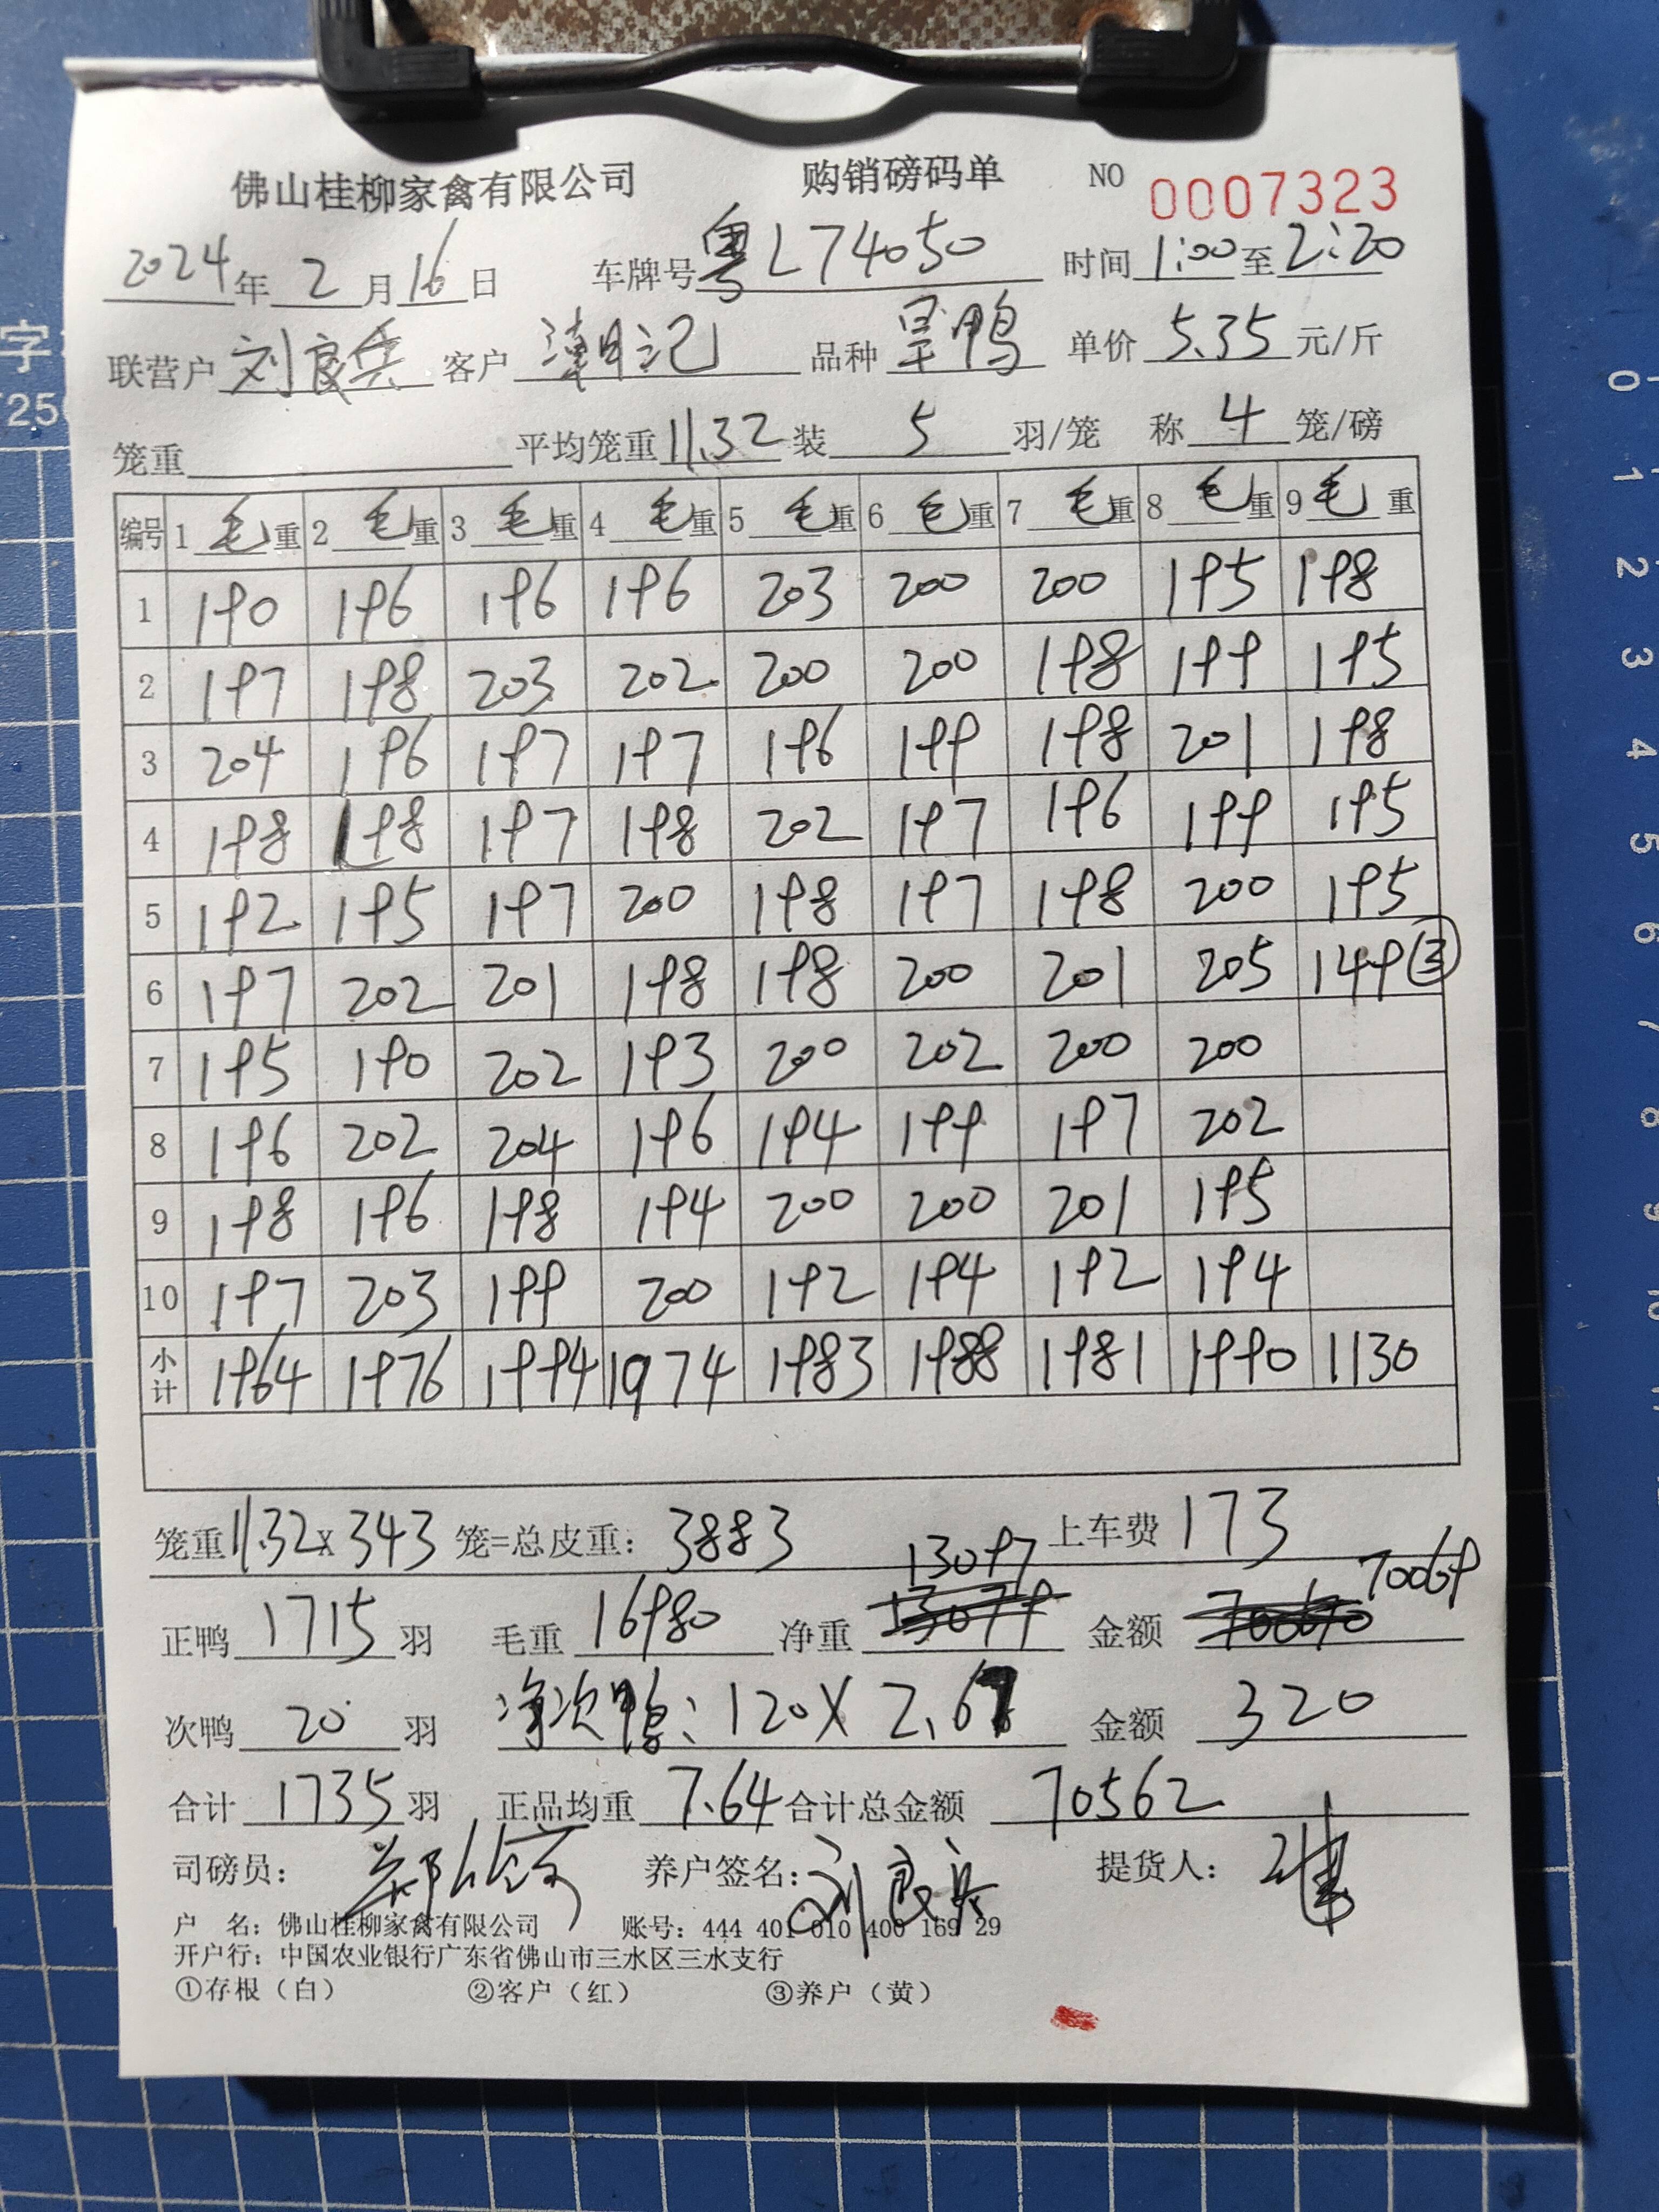 佛山桂柳家禽有限公司 购销磅码单 NO 0007323
2024年2月16日 车牌号粤L74050 时间1:00至2:20
联营户刘良兵 客户潮记 品种旱鸭 单价5.35元/斤
笼重 平均笼重11.32装5羽/笼 称4笼/磅
编号 1毛重 2毛重 3毛重 4毛重 5毛重 6毛重 7毛重 8毛重 9毛重
1 190 196 196 196 203 200 200 195 198
2 197 198 203 202 200 200 198 199 195
3 204 196 197 197 196 199 198 201 198
4 198 198 197 198 202 197 196 199 195
5 192 195 197 200 198 197 198 200 195
6 197 202 201 198 198 200 201 205 149③
7 195 190 202 193 200 202 200 200
8 196 202 204 196 194 199 197 202
9 198 196 198 194 200 200 201 195
10 197 203 199 200 192 194 192 194
小计 1964 1976 1994 1974 1983 1988 1981 1990 1130
笼重11.32x343笼=总皮重:3883 上车费173
13097 70069
正鸭1715羽 毛重16980 净重13079 金额
次鸭20羽 净次鸭:120X2.67 金额320
合计1735羽 正品均重7.64合计总金额70562
司磅员: 郑 养户签名:刘良兵 提货人:
户 名: 佛山桂柳家禽有限公司 账号: 444 401 010 400 169 29
开户行: 中国农业银行广东省佛山市三水区三水支行
①存根（白） ②客户（红） ③养户（黄）
字
250
0
1
2
3
4
5
6
7
8
9
10